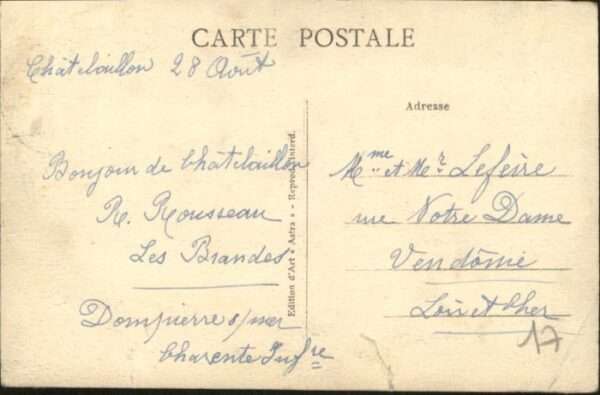 CARTE POSTALE
Châtelaillon 28 Août
Bonjour de Châtelaillon
R. Rousseau
Les Brandes
Dompierre s/mer
Charente Infre
Edition d'Art « Astra » - Reprod. Interd.
Adresse
Mme et Mr Lefeire
rue Notre Dame
Vendômie
Loir et Cher
17